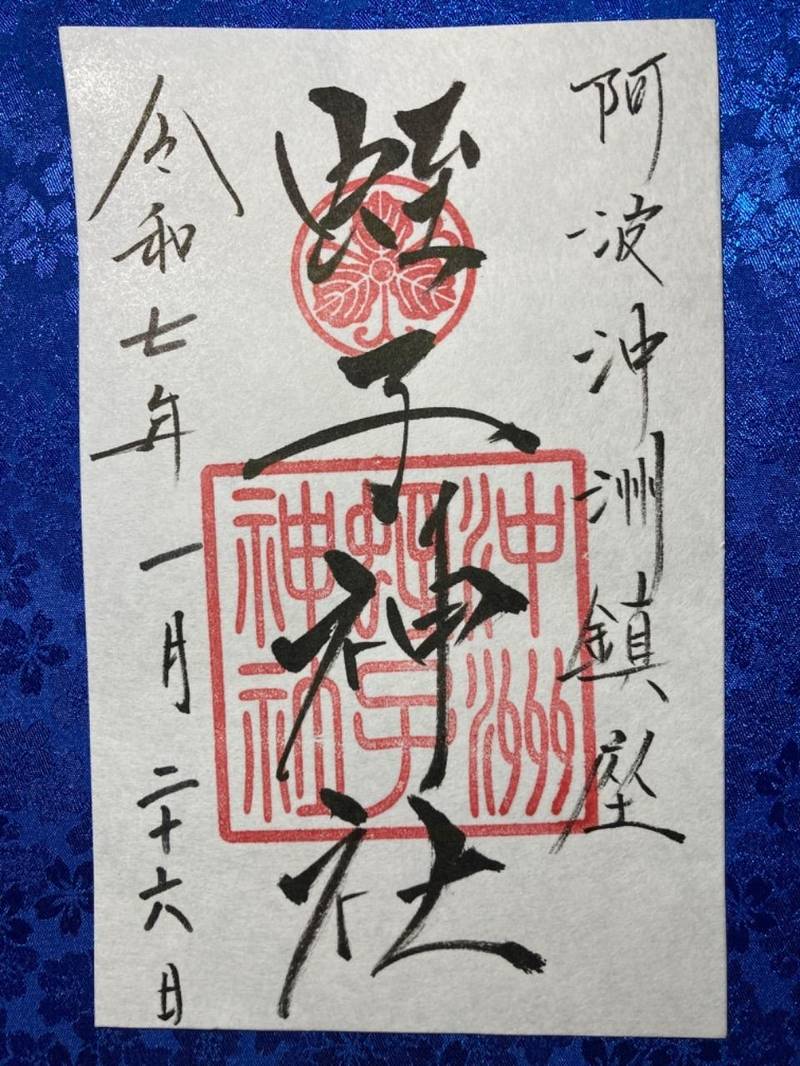 阿波沖洲鎮座
蛭子神社
令和七年 一月 二十六日
沖洲
蛭子
神社